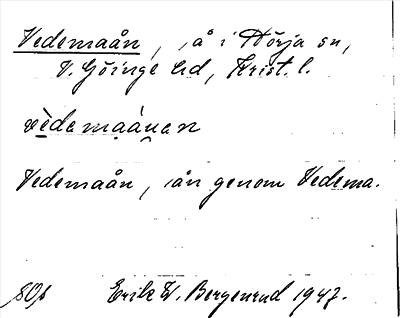 Vedemaån, å i Hörja sn,
V. Göinge hd, Krist. l.
vèdemaánan
Vedemaån, ån genom Vedema.
Erik W. Bergenrud 1947.